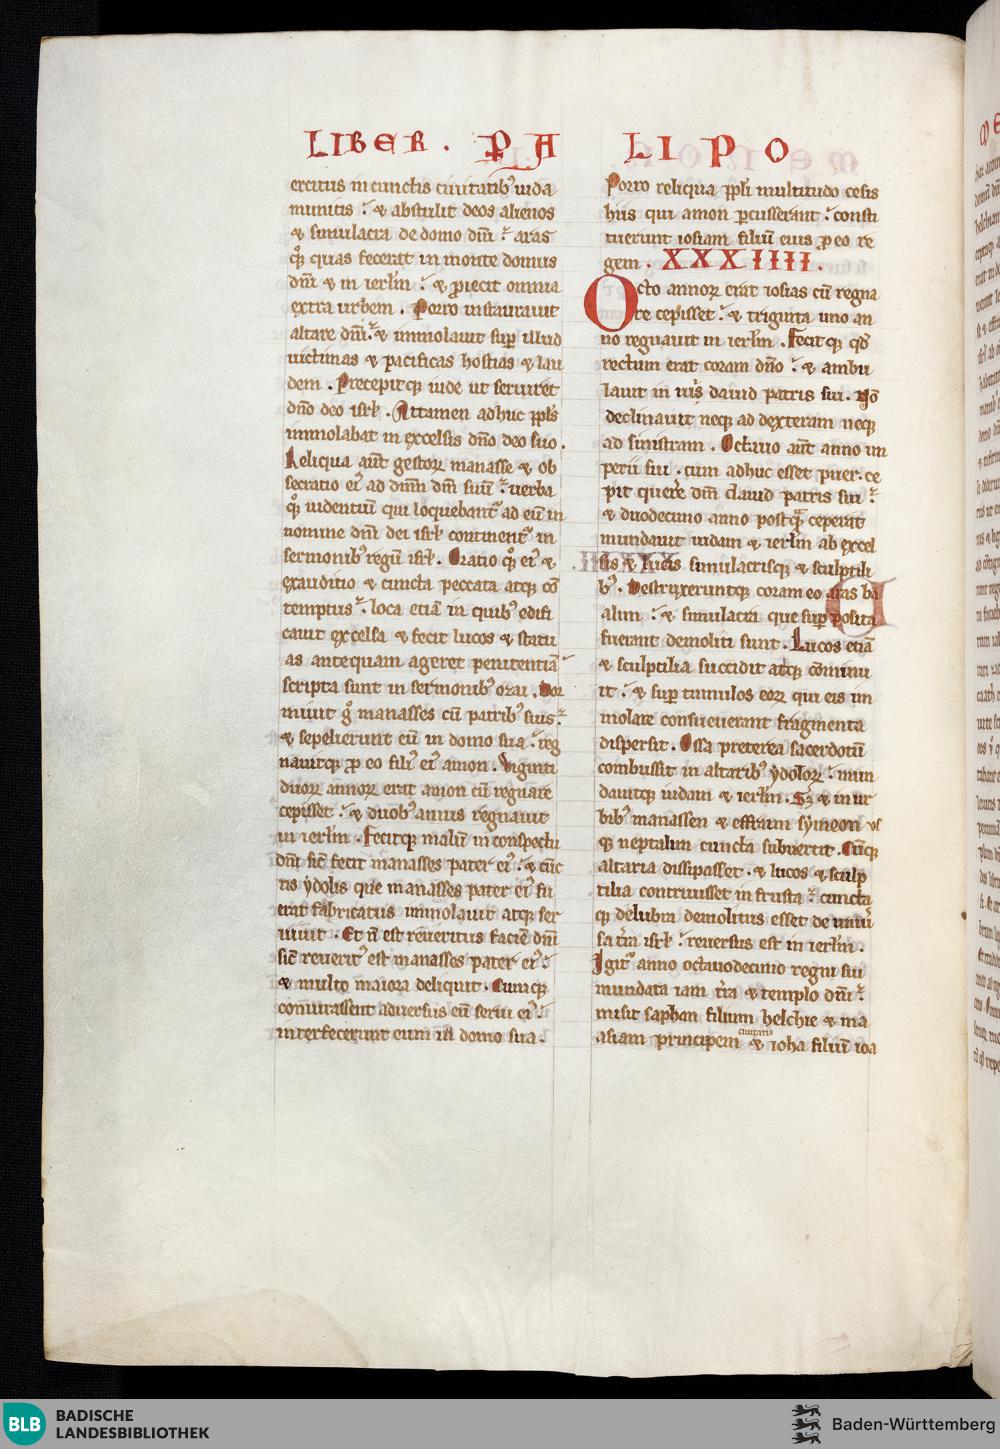 LIBER . PA LIPO
ercitus in cunctis ciuitatibꝰ iuda
munitis : ⁊ abstulit deos alienos
⁊ simulacra de domo dn̄i : aras
qꝫ quas fecerat in monte domus
dn̄i ⁊ in ierl̄m : ⁊ ꝓiecit omnia
extra urbem . Porro instaurauit
altare dn̄i : ⁊ immolauit suꝑ illud
uictimas ⁊ pacificas hostias ⁊ lau
dem . Precepitqꝫ iude ut seruiret
dn̄o deo isrł . Attamen adhuc ppl̄s
immolabat in excelsis dn̄o deo suo .
Reliqua aūt gestoꝝ manasse ⁊ ob
secratio eiꝰ ad dn̄m dm̄ suū : uerba
qꝫ uidentiū qui loquebantᷣ ad eū in
nomine dn̄i dei isrł continentᷣ in
sermonibꝰ regū isrł . Oratio qꝫ eiꝰ ⁊
exauditio ⁊ cuncta peccata atqꝫ cō
temptus : loca etiā in quibꝰ edifi
cauit excelsa ⁊ fecit lucos ⁊ statu
as antequam ageret penitentiā
scripta sunt in sermonibꝰ ozai . Dor
miuit gͦ manasses cū patribꝰ suis :
⁊ sepelierunt eū in domo sua : reg
nauitqꝫ ꝓ eo filiꝰ eiꝰ amon . Viginti
duoꝝ annoꝝ erat amon cū regnare
cepisset : ⁊ duobꝰ annis regnauit
in ierl̄m . Fecitqꝫ malū in conspectu
dn̄i sic̄ fecit manasses pater eiꝰ : ⁊ cūc
tis ydolis que manasses pater eiꝰ fu
erat fabricatus immolauit atqꝫ ser
uiuit . Et n̄ est reueritus faciē dn̄i
sic̄ reueritꝰ est manasses pater eiꝰ :
⁊ multo maiora deliquit . Cumqꝫ
coniurassent aduersus eū serui eiꝰ :
interfecerunt eum in domo sua .
Porro reliqua ppl̄i multitudo cesis
hiis qui amon ꝑcusserant : consti
tuerunt iosiam filiū eius ꝓ eo re
gem . XXXIIII .
Octo annoꝝ erat iosias cū regna
re cepisset : ⁊ triginta uno an
no regnauit in ierl̄m . Fecitqꝫ qd̄
rectum erat coram dn̄o : ⁊ ambu
lauit in uijs dauid patris sui . Nō
declinauit neqꝫ ad dexteram neqꝫ
ad sinistram . Octauo aūt anno im
perii sui . cum adhuc esset puer . ce
pit querꝰe dm̄ dauid patris sui :
⁊ duodecimo anno postqᷓ ceperat
mundauit iudam ⁊ ierl̄m ab excel
sis ⁊ lucis simulacrisqꝫ ⁊ sculptili
bꝰ . Destruxeruntqꝫ coram eo aras ba
alim : ⁊ simulacra que suꝑ posita
fuerant demoliti sunt . Lucos etiā
⁊ sculptilia succidit atqꝫ cōminu
it : ⁊ suꝑ tumulos eoꝝ qui eis im
molare consueuerant fragmenta
dispersit . Ossa preterea sacerdotū
combussit in altaribꝰ ydoloꝝ : mun
dauitqꝫ iudam ⁊ ierl̄m . Sꝫ ⁊ in ur
bibꝰ manassen ⁊ effraim symeon us
qꝫ neptalim cuncta subuertit . Cūqꝫ
altaria dissipasset . ⁊ lucos ⁊ sculp
tilia contriuisset in frusta : cuncta
qꝫ delubra demolitus esset de uniuꝰ
sa tr̄a isrł : reuersus est in ierl̄m .
Igitᷣ anno octauodecimo regni sui
mundata iam tr̄a ⁊ templo dn̄i :
misit saphan filium helchie ⁊ ma
ciuitatis
asiam principem ⁊ ioha filiū ioa
BLB BADISCHE
LANDESBIBLIOTHEK
Baden-Württemberg